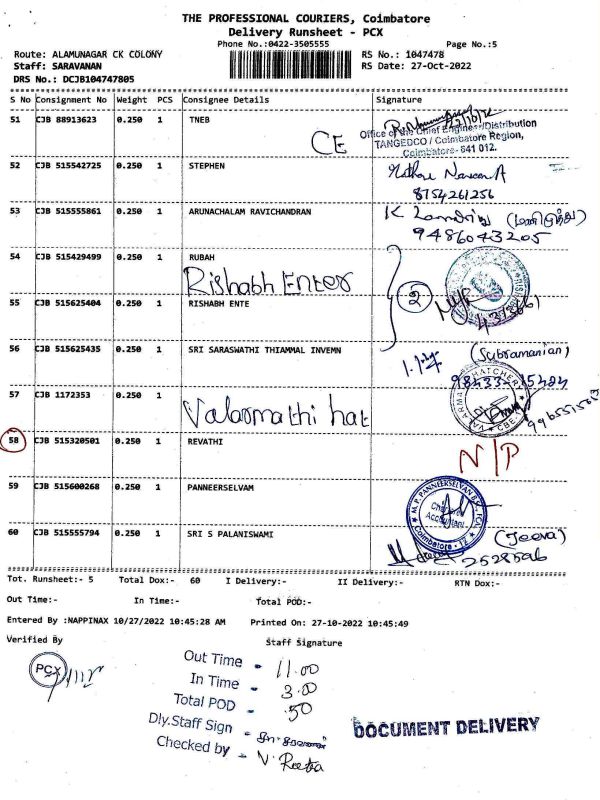 THE PROFESSIONAL COURIERS, Coimbatore
Delivery Runsheet - PCX
Phone No.:0422-3505555 Page No.:5
Route: ALAMUNAGAR CK COLONY RS No.: 1047478
Staff: SARAVANAN RS Date: 27-Oct-2022
DRS No.: DCJB104747805
S No Consignment No Weight PCS Consignee Details Signature
51 CJB 88913623 0.250 1 TNEB
CE
Office of the Chief Engineer/Distribution
TANGEDCO / Coimbatore Region,
Coimbatore- 641 012.
52 CJB 515542725 0.250 1 STEPHEN
8754261256
53 CJB 515555861 0.250 1 ARUNACHALAM RAVICHANDRAN
9486043205
54 CJB 515429499 0.250 1 RUBAH
Rishabh Enter
2
55 CJB 515625404 0.250 1 RISHABH ENTE
56 CJB 515625435 0.250 1 SRI SARASWATHI THIAMMAL INVEMN
(Subramanian)
57 CJB 1172353 0.250 1
Valarmathi hat
58 CJB 515320501 0.250 1 REVATHI
N/P
59 CJB 515600268 0.250 1 PANNEERSELVAM
M.P. PANNEERSELVAN B.Sc., FCA,
Chartered
Accountant
Coimbatore - 12
60 CJB 515555794 0.250 1 SRI S PALANISWAMI
(Jeeva)
2528596
Tot. Runsheet:- 5 Total Dox:- 60 I Delivery:- II Delivery:- RTN Dox:-
Out Time:- In Time:- Total POD:-
Entered By :NAPPINAX 10/27/2022 10:45:28 AM Printed On: 27-10-2022 10:45:49
Verified By Staff Signature
PCX
Out Time - 11.00
In Time - 3.00
Total POD - 50
Dly.Staff Sign -
Checked by - V. Reetha
DOCUMENT DELIVERY